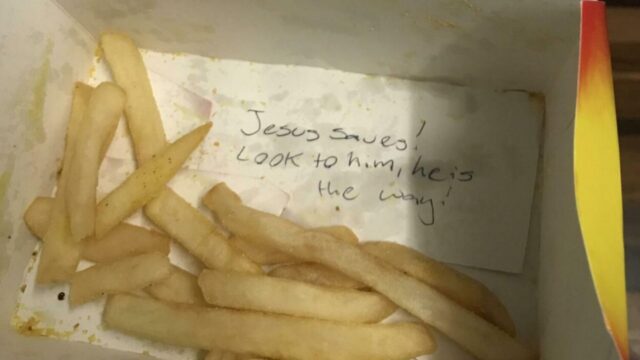 Jesus saves!
LOOK to him, he is
the way!